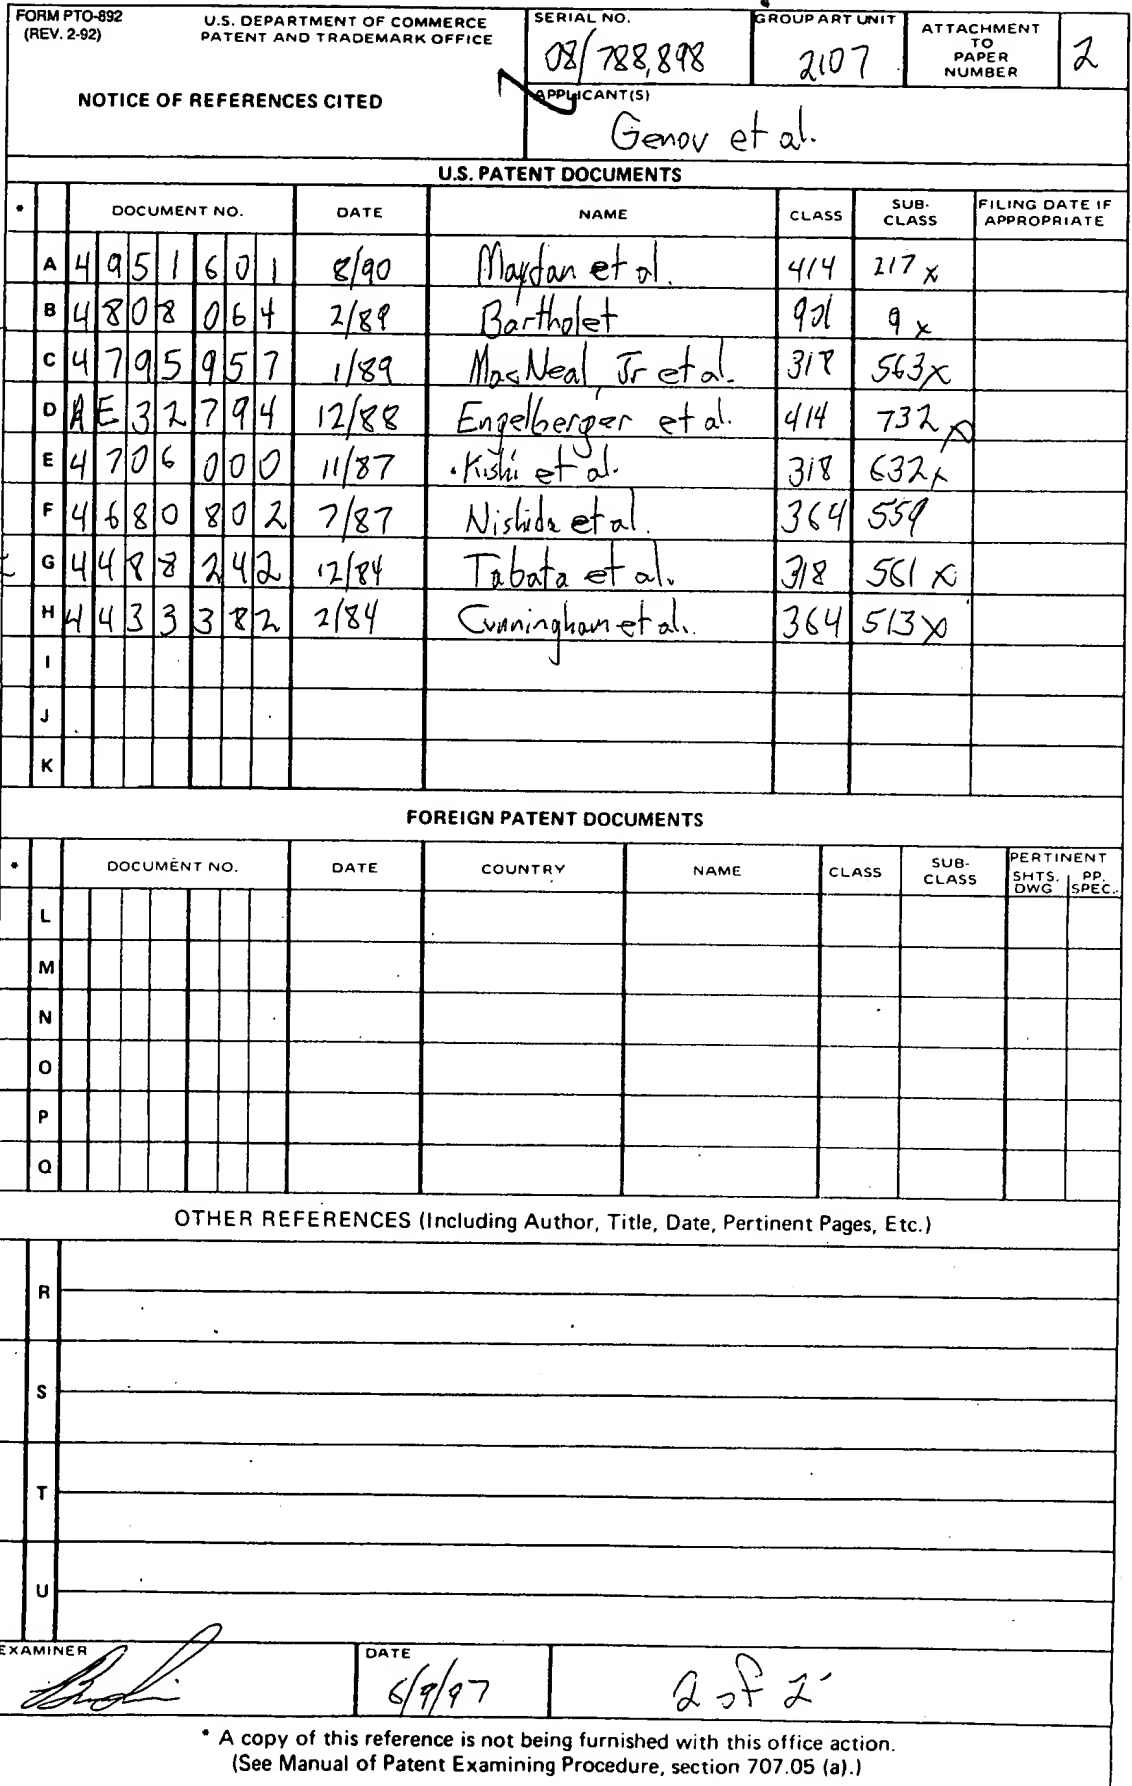 FORM PTO-892 U.S. DEPARTMENT OF COMMERCE
(REV. 2-92) PATENT AND TRADEMARK OFFICE
NOTICE OF REFERENCES CITED
SERIAL NO. GROUP ART UNIT ATTACHMENT TO PAPER NUMBER
08/788,898 2107 2
APPLICANT(S)
Genov et al.
U.S. PATENT DOCUMENTS
* DOCUMENT NO. DATE NAME CLASS SUB-CLASS FILING DATE IF APPROPRIATE
A 4951601 8/90 Maydan et al. 414 217 x
B 4808064 2/89 Bartholet 901 9 x
C 4795957 1/89 MacNeal, Jr et al. 318 563 x
D RE32794 12/88 Engelberger et al. 414 732 x
E 4706000 11/87 Kishi et al. 318 632 x
F 4680802 7/87 Nishida et al. 364 559
G 4488242 12/84 Tabata et al. 318 561 x
H 4433382 2/84 Cunningham et al. 364 513 x
I
J
K
FOREIGN PATENT DOCUMENTS
* DOCUMENT NO. DATE COUNTRY NAME CLASS SUB-CLASS PERTINENT SHTS. DWG PP. SPEC.
L
M
N
O
P
Q
OTHER REFERENCES (Including Author, Title, Date, Pertinent Pages, Etc.)
R
S
T
U
EXAMINER DATE
6/9/97 2 of 2
* A copy of this reference is not being furnished with this office action.
(See Manual of Patent Examining Procedure, section 707.05 (a).)